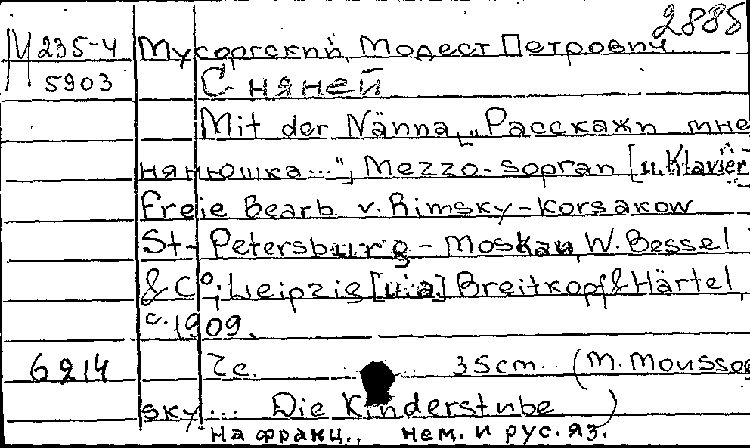 2885
М 235-4 Мусоргский, Модест Петрович
5903 С няней
Mit der Nänna, [„Расскажи мне
нянюшка..."], Mezzo-sopran [u. Klavier
Freie Bearb v. Rimsky-Korsakow
St-Petersburg-Moskau, W. Bessel
& C°; Leipzig [u.a] Breitkopf & Härtel,
c. 1909.
6214 7c. 35cm (M. Moussor
sky... Die Kinderstube)
на франц., нем. и рус. яз.